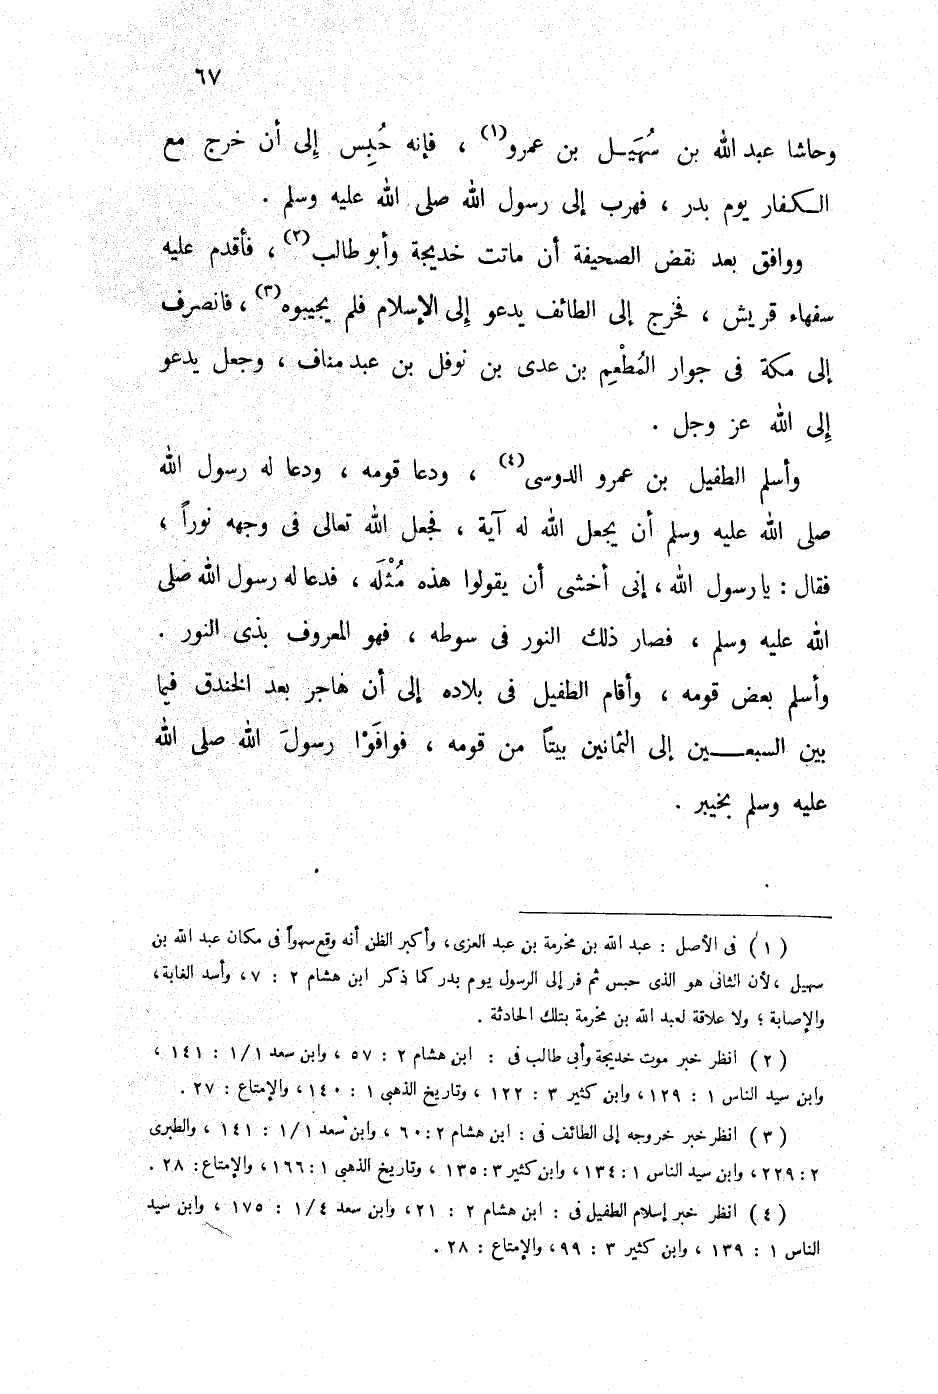 ٦٧
وحاشا عبد الله بن سُهَيـل بن عمرو(١) ، فإنه حُبِس إلى أن خرج مع
الـكفار يوم بدر ، فهرب إلى رسول الله صلى الله عليه وسلم .
ووافق بعد نقض الصحيفة أن ماتت خديجة وأبو طالب(٢) ، فأقدم عليه
سفهاء قريش ، فخرج إلى الطائف يدعو إلى الإسلام فلم يجيبوه(٣) ، فانصرف
إلى مكة فى جوار المُطْعِم بن عدى بن نوفل بن عبد مناف ، وجعل يدعو
إلى الله عز وجل .
وأسلم الطفيل بن عمرو الدوسى(٤) ، ودعا قومه ، ودعا له رسول الله
صلى الله عليه وسلم أن يجعل الله له آية ، فجعل الله تعالى فى وجهه نوراً ،
فقال : يا رسول الله ، إنى أخشى أن يقولوا هذه مُثْلَه ، فدعا له رسول الله صلى
الله عليه وسلم ، فصار ذلك النور فى سوطه ، فهو المعروف بذى النور .
وأسلم بعض قومه ، وأقام الطفيل فى بلاده إلى أن هاجر بعد الخندق فيما
بين السبعـــين إلى الثمانين بيتاً من قومه ، فوافَوْا رسولَ الله صلى الله
عليه وسلم بخيبر .
( ١ ) فى الأصل : عبد الله بن مخرمة بن عبد العزى، وأكبر الظن أنه وقع سهواً فى مكان عبد الله بن
سهيل ، لأن الثانى هو الذى حبس ثم فر إلى الرسول يوم بدر كما ذكر ابن هشام ٢ : ٧، وأسد الغابة،
والإصابة ؛ ولا علاقة لعبد الله بن مخرمة بتلك الحادثة .
( ٢ ) انظر خبر موت خديجة وأبى طالب فى : ابن هشام ٢ : ٥٧ ، وابن سعد ١/١ : ١٤١ ،
وابن سيد الناس ١ : ١٢٩، وابن كثير ٣ : ١٢٢ ، وتاريخ الذهبى ١ : ١٤٠، والإمتاع : ٢٧ .
( ٣ ) انظر خبر خروجه إلى الطائف فى : ابن هشام ٢ : ٦٠ ، وابن سعد ١/١ : ١٤١ ، والطبرى
٢ : ٢٢٩، وابن سيد الناس ١ : ١٣٤، وابن كثير ٣ : ١٣٥ ، وتاريخ الذهبى ١ : ١٦٦، والإمتاع : ٢٨ .
( ٤ ) انظر خبر إسلام الطفيل فى : ابن هشام ٢ : ٢١، وابن سعد ١/٤ : ١٧٥ ، وابن سيد
الناس ١ : ١٣٩ ، وابن كثير ٣ : ٩٩، والإمتاع : ٢٨ .